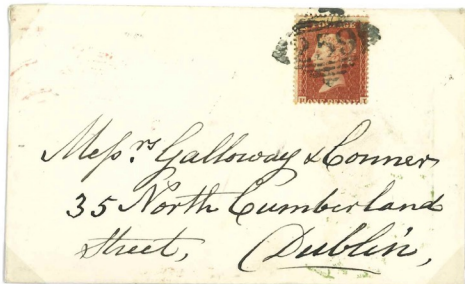 Messrs Galloway & Conner
35 North Cumberland
Street, Dublin,